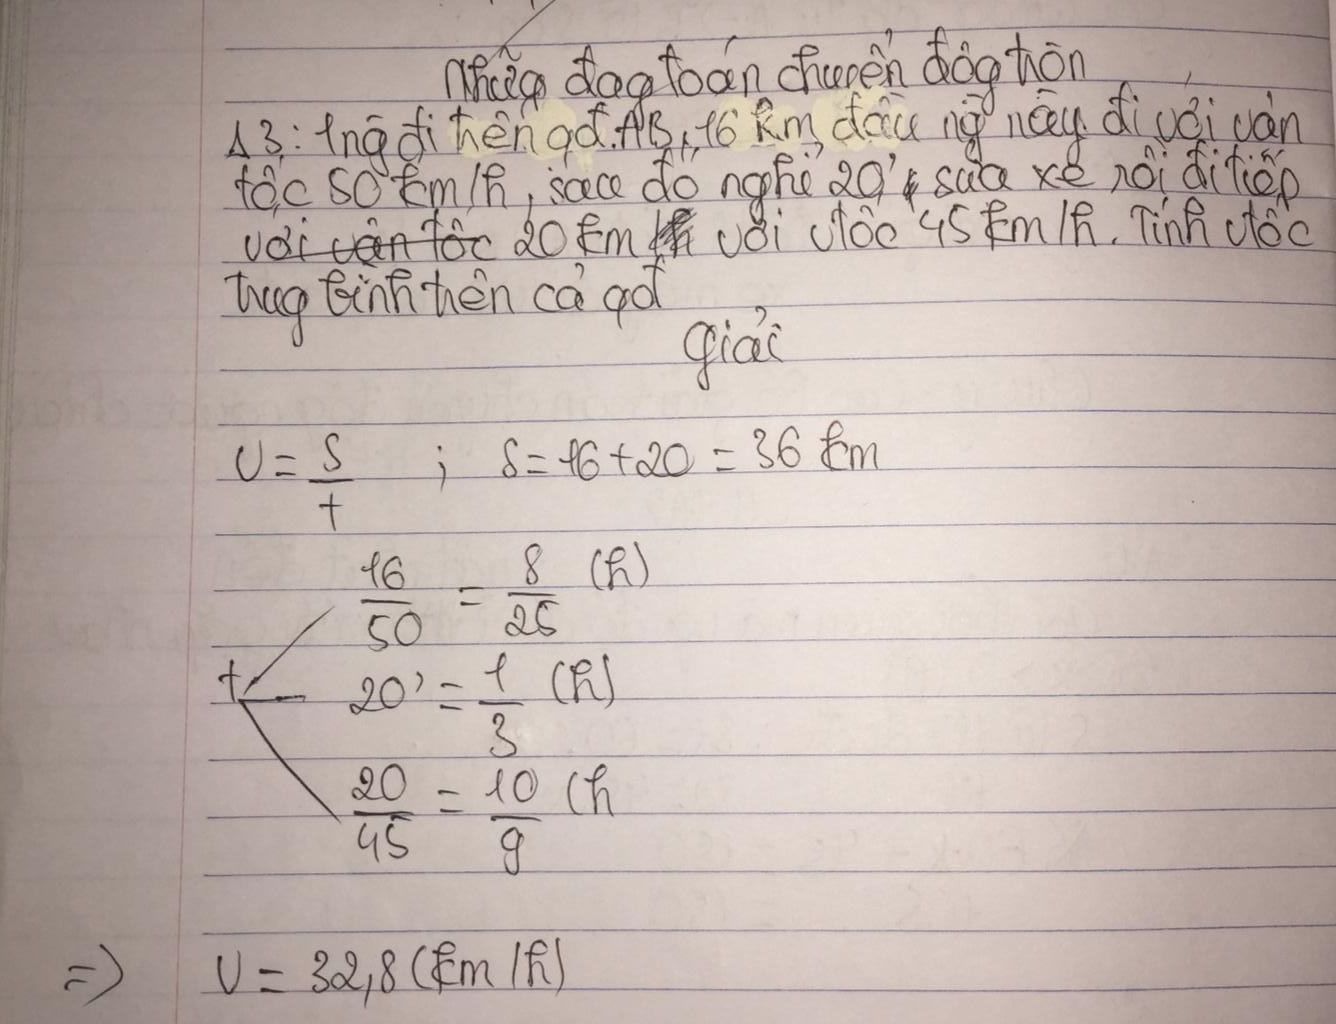 Những đạg toán chuyển độg tròn
13: 1ng đi trên qđ. AB, 16 km đầu ng này đi với vận
tốc 50 km/h, sau đó nghỉ 20' sửa xe rồi đi tiếp
với vận tốc 20 km với vtốc 45 km/h. Tính vtốc
trug bình trên cả qđ
Giải
V = S/t ; S = 16 + 20 = 36 km
16/50 = 8/25 (h)
t 20' = 1/3 (h)
20/45 = 10/9 (h
=> V = 32,8 (km/h)